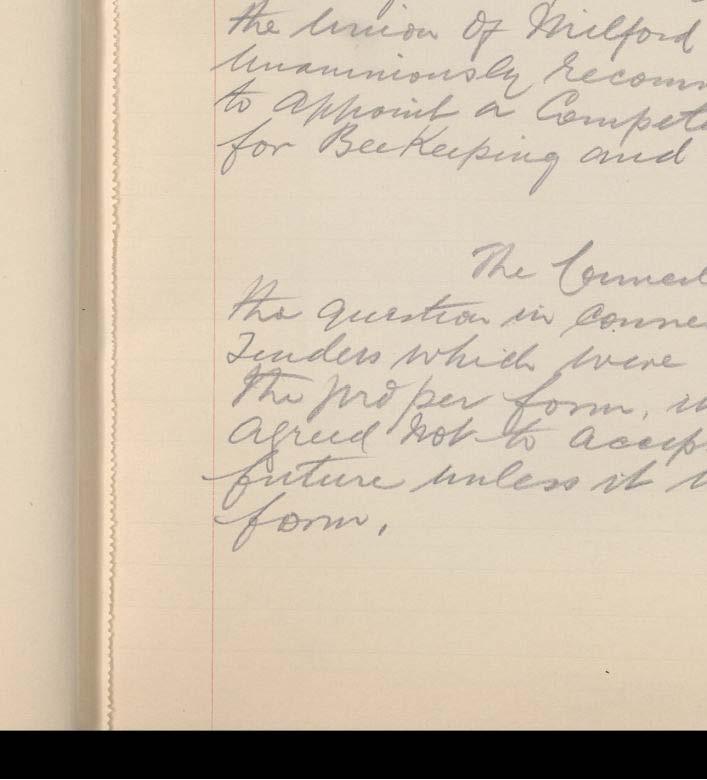 the Union Of Milford
Unanimously recomm
to Appoint a Compete
for BeeKeeping and
The Council
the question in conne
Tenders which were
the proper form, w
agreed Not to accep
future unless it
form.